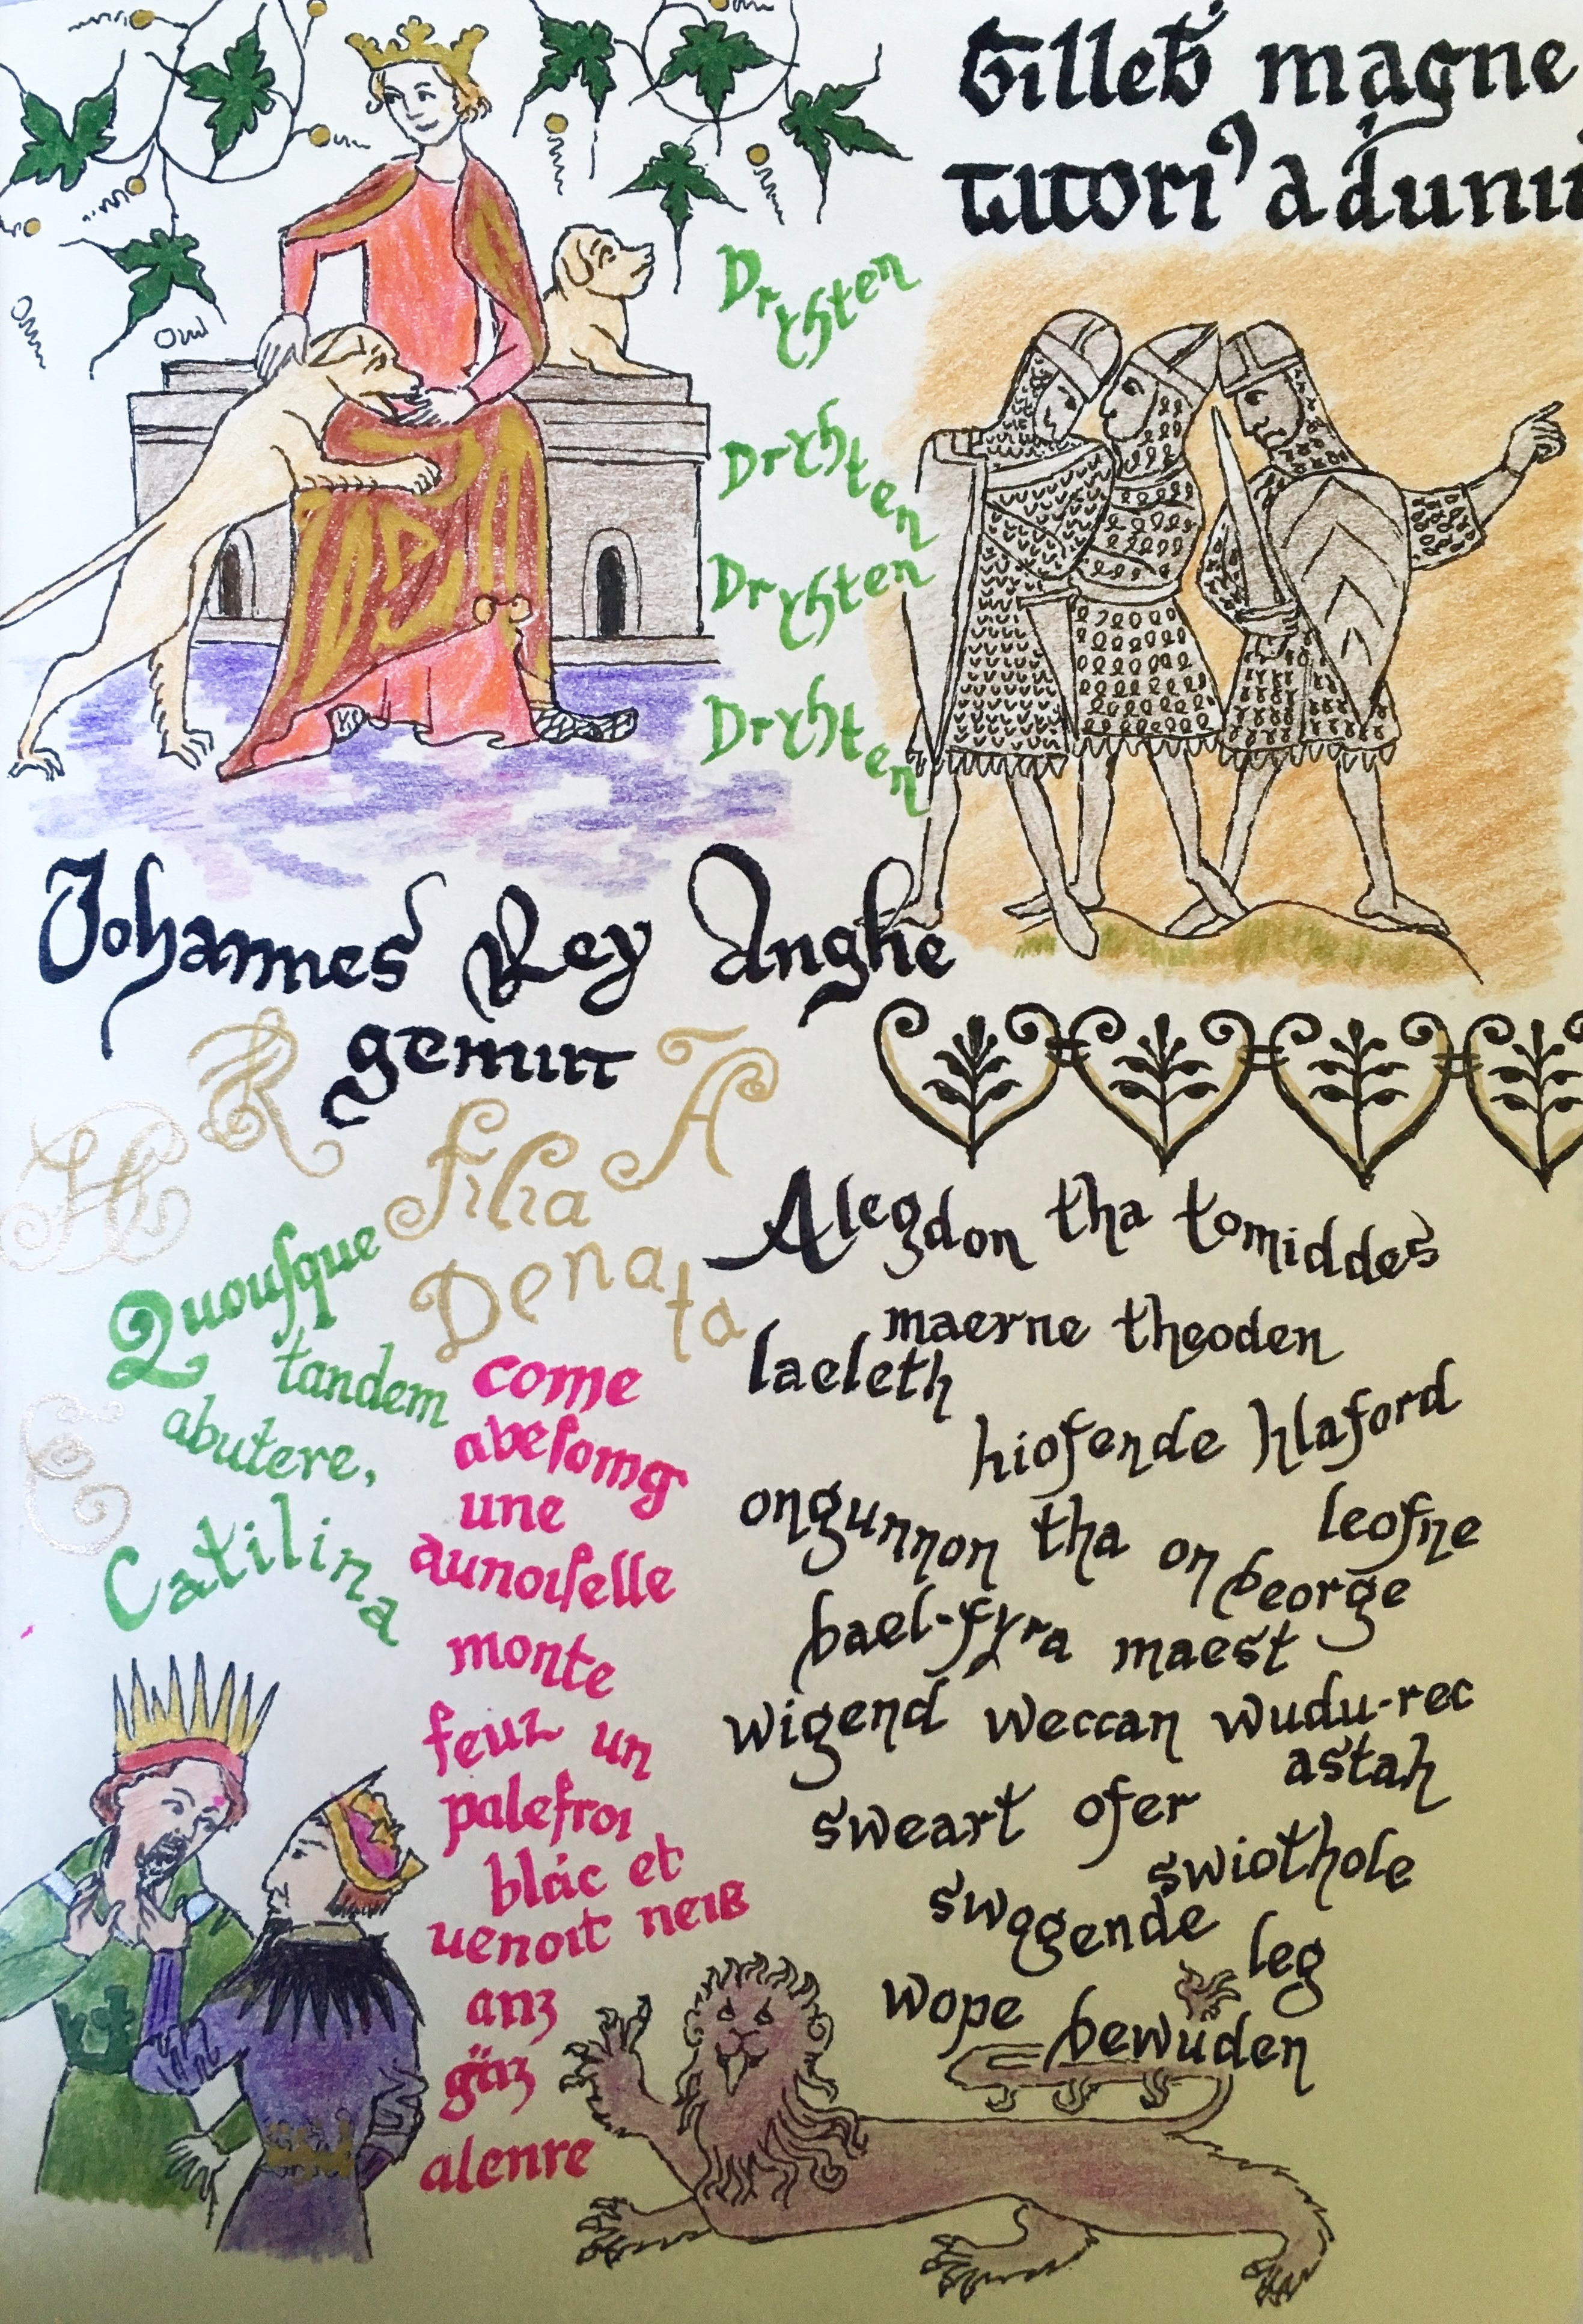 Gilleb magne
tutori' adunu
Drihten
Drihten
Drihten
Drihten
Johannes Rex Anglie
genuit
R
A
H
filia
Denata
Quousque
tandem
abutere,
Catilina
C
come
abesoing
une
dunoiselle
monte
seuz un
palefroi
blaic et
uenoit
alenre
Alegdon tha tomiddes
maerne theoden
laeleth
hiofende hlaford
leofne
ongunnon tha on beorge
bael-fyra maest
wigend weccan wudu-rec
astah
sweart ofer
swiothole
swogende
leg
wope bewuden